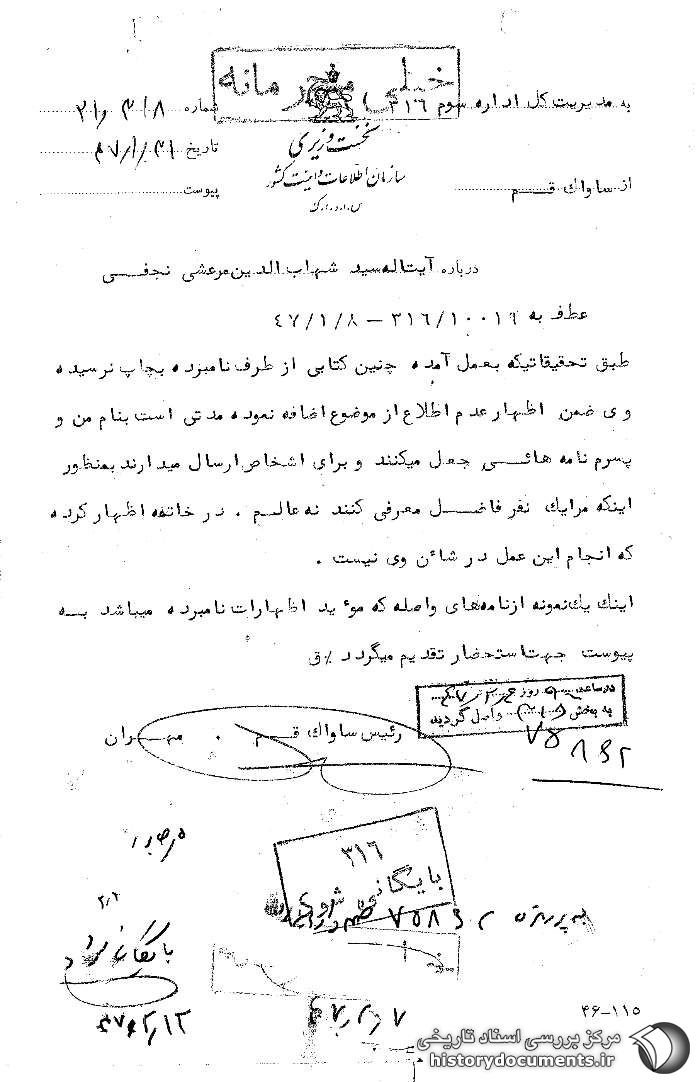 خیلی محرمانه
به مدیریت کل اداره سوم (۳۱۶
شماره ۲۱/۳۱۸
نخست وزیری
تاریخ ۴۷/۱/۳۱
سازمان اطلاعات و امنیت کشور
از ساواك قم
پیوست
س.ا.و.ا.ک
درباره آیت‌اله سید شهاب الدین مرعشی نجفی
عطف به ۳۱۶/۱۰۰۱۶ – ۴۷/۱/۸
طبق تحقیقاتیکه بعمل آمده چنین کتابی از طرف نامبرده بچاپ نرسیده
وی ضمن اظهار عدم اطلاع از موضوع اضافه نموده مدتی است بنام من و
پسرم نامه هائی جعل میکنند و برای اشخاص ارسال میدارند بمنظور
اینکه مرا یك نفر فاضل معرفی کنند نه عالم . در خاتمه اظهار کرده
که انجام این عمل در شائن وی نیست .
اینك یك نمونه از نامه‌های واصله که موٌید اظهارات نامبرده میباشد به
پیوست جهت استحضار تقدیم میگردد ٪ق
در ساعت روز
به بخش (۳۱۶) واصل گردید
رئیس ساواك قم . مهران
۷۵۸۶۲
۳۱۶
بایگانی شود
۲/۲
به پرونده ۷۵۸۶۲
بایگانی شود
۴۷/۲/۱۲
۴۷/۲/۷
۴۶-۱۱۵
مرکز بررسی اسناد تاریخی
historydocuments.ir